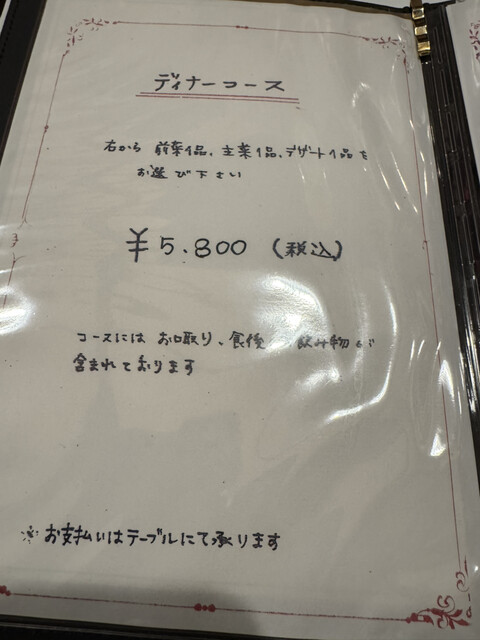 ディナーコース
右から 前菜1品、主菜1品、デザート1品を
お選び下さい
¥5.800 (税込)
コースには お口取り、食後 飲み物が
含まれております
※お支払いはテーブルにて承ります